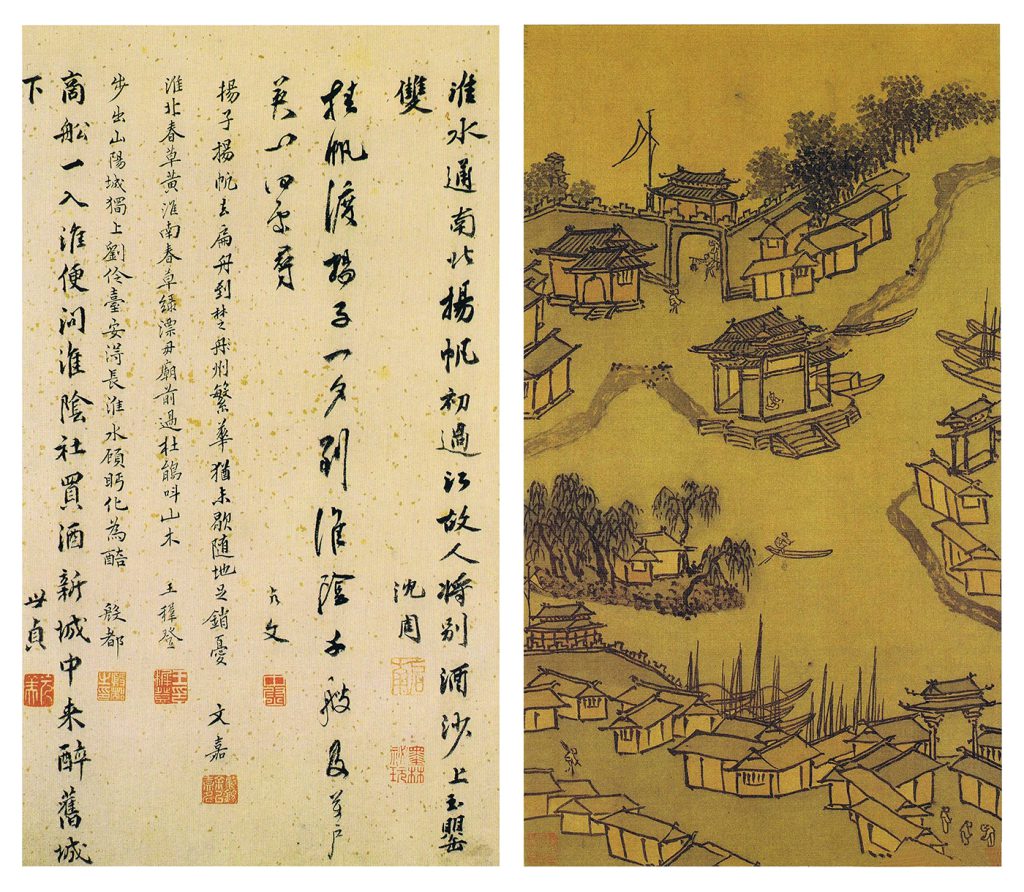 淮水通南北揚帆初過江故人將別酒沙上玉罌
雙 沈周
墨林祕玩
挂帆渡揚子一夕到淮陰千艘及萬戶
揚子揚帆去扁舟到楚舟州繁華猶未歇隨地足銷憂 文嘉
淮北春草黃淮南春草綠漂母廟前過杜鵑叫山木 王穉登
步出山陽城獨上劉伶臺安得長淮水顧眄化為醅 殷都
商船一入淮便問淮陰社買酒新城中來醉舊城
下 世貞